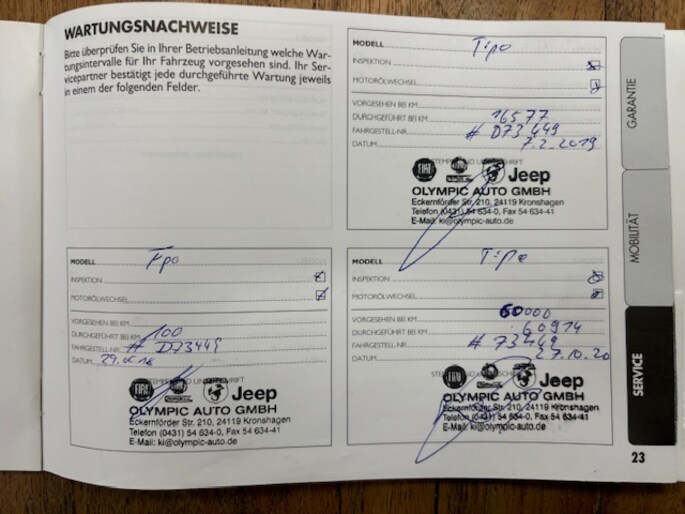 WARTUNGSNACHWEISE
Bitte überprüfen Sie in Ihrer Betriebsanleitung welche War-
tungsintervalle für Ihr Fahrzeug vorgesehen sind. Ihr Ser-
vicepartner bestätigt jede durchgeführte Wartung jeweils
in einem der folgenden Felder.
MODELL Tipo
INSPEKTION
MOTORÖLWECHSEL
VORGESEHEN BEI KM
DURCHGEFÜHRT BEI KM 16577
FAHRGESTELL-NR. # D73449
DATUM 7.2.2019
STEMPEL UND UNTERSCHRIFT
FIAT Jeep
OLYMPIC AUTO GMBH
Eckernförder Str. 210, 24119 Kronshagen
Telefon (0431) 54 634-0, Fax 54 634-41
E-Mail: ki@olympic-auto.de
MODELL Tipo
INSPEKTION
MOTORÖLWECHSEL
VORGESEHEN BEI KM
DURCHGEFÜHRT BEI KM 100
FAHRGESTELL-NR. # D73449
DATUM
STEMPEL UND UNTERSCHRIFT
FIAT Jeep
OLYMPIC AUTO GMBH
Eckernförder Str. 210, 24119 Kronshagen
Telefon (0431) 54 634-0, Fax 54 634-41
E-Mail: ki@olympic-auto.de
MODELL Tipo
INSPEKTION
MOTORÖLWECHSEL
VORGESEHEN BEI KM 60000
DURCHGEFÜHRT BEI KM 60914
FAHRGESTELL-NR. # 73449
DATUM 27.10.20
STEMPEL UND UNTERSCHRIFT
FIAT Jeep
OLYMPIC AUTO GMBH
Eckernförder Str. 210, 24119 Kronshagen
Telefon (0431) 54 634-0, Fax 54 634-41
E-Mail: ki@olympic-auto.de
GARANTIE
MOBILITÄT
SERVICE
23